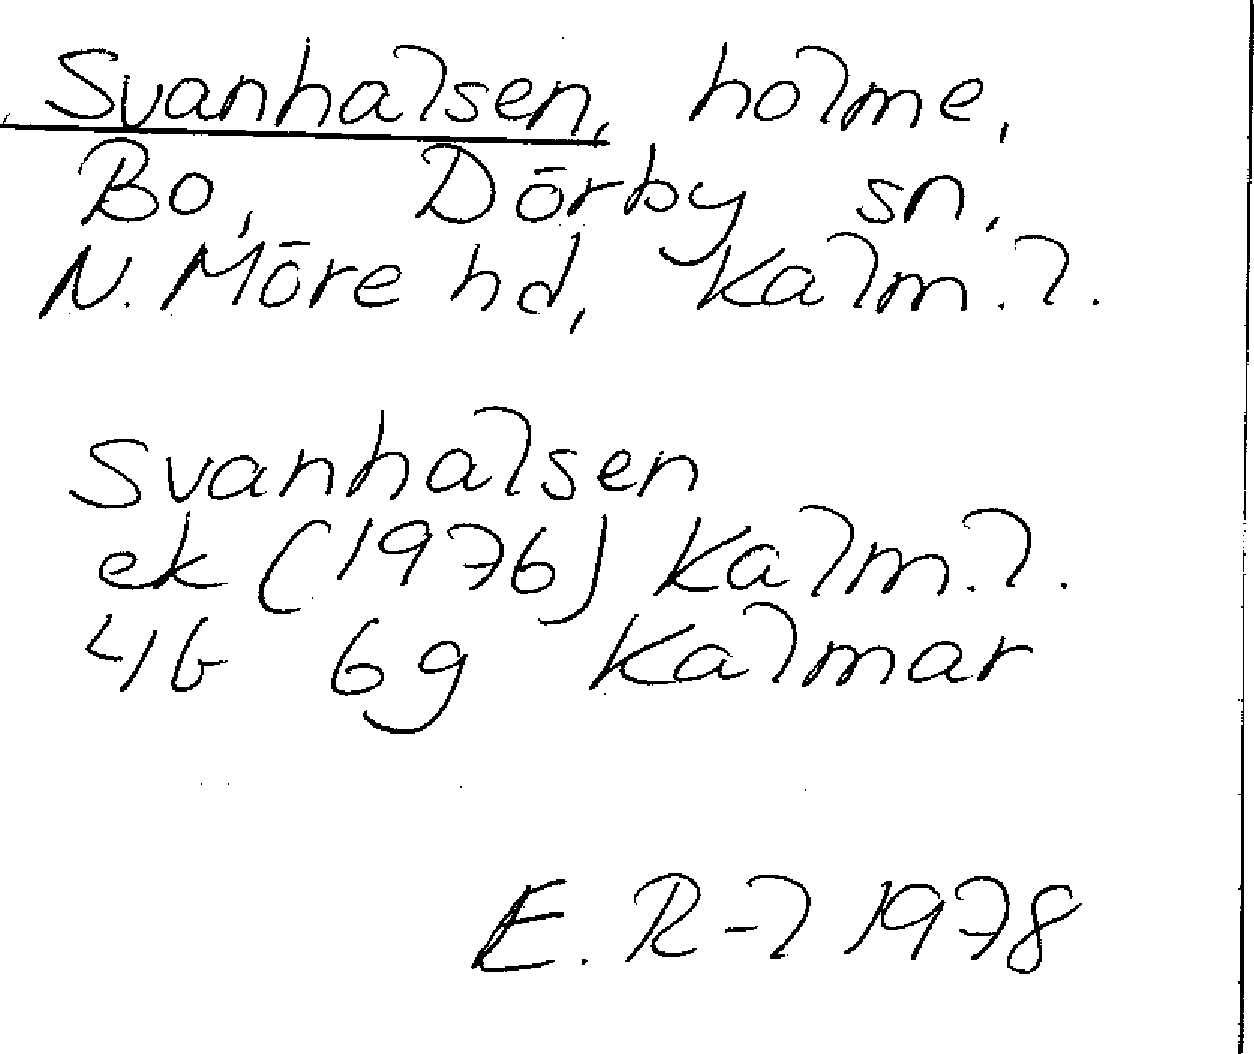 Svanhalsen, holme,
Bo, Dörby sn,
N. Möre hd, Kalm. l.
Svanhalsen
ek (1976) Kalm. l.
4G 6g Kalmar
E. R-l 1978